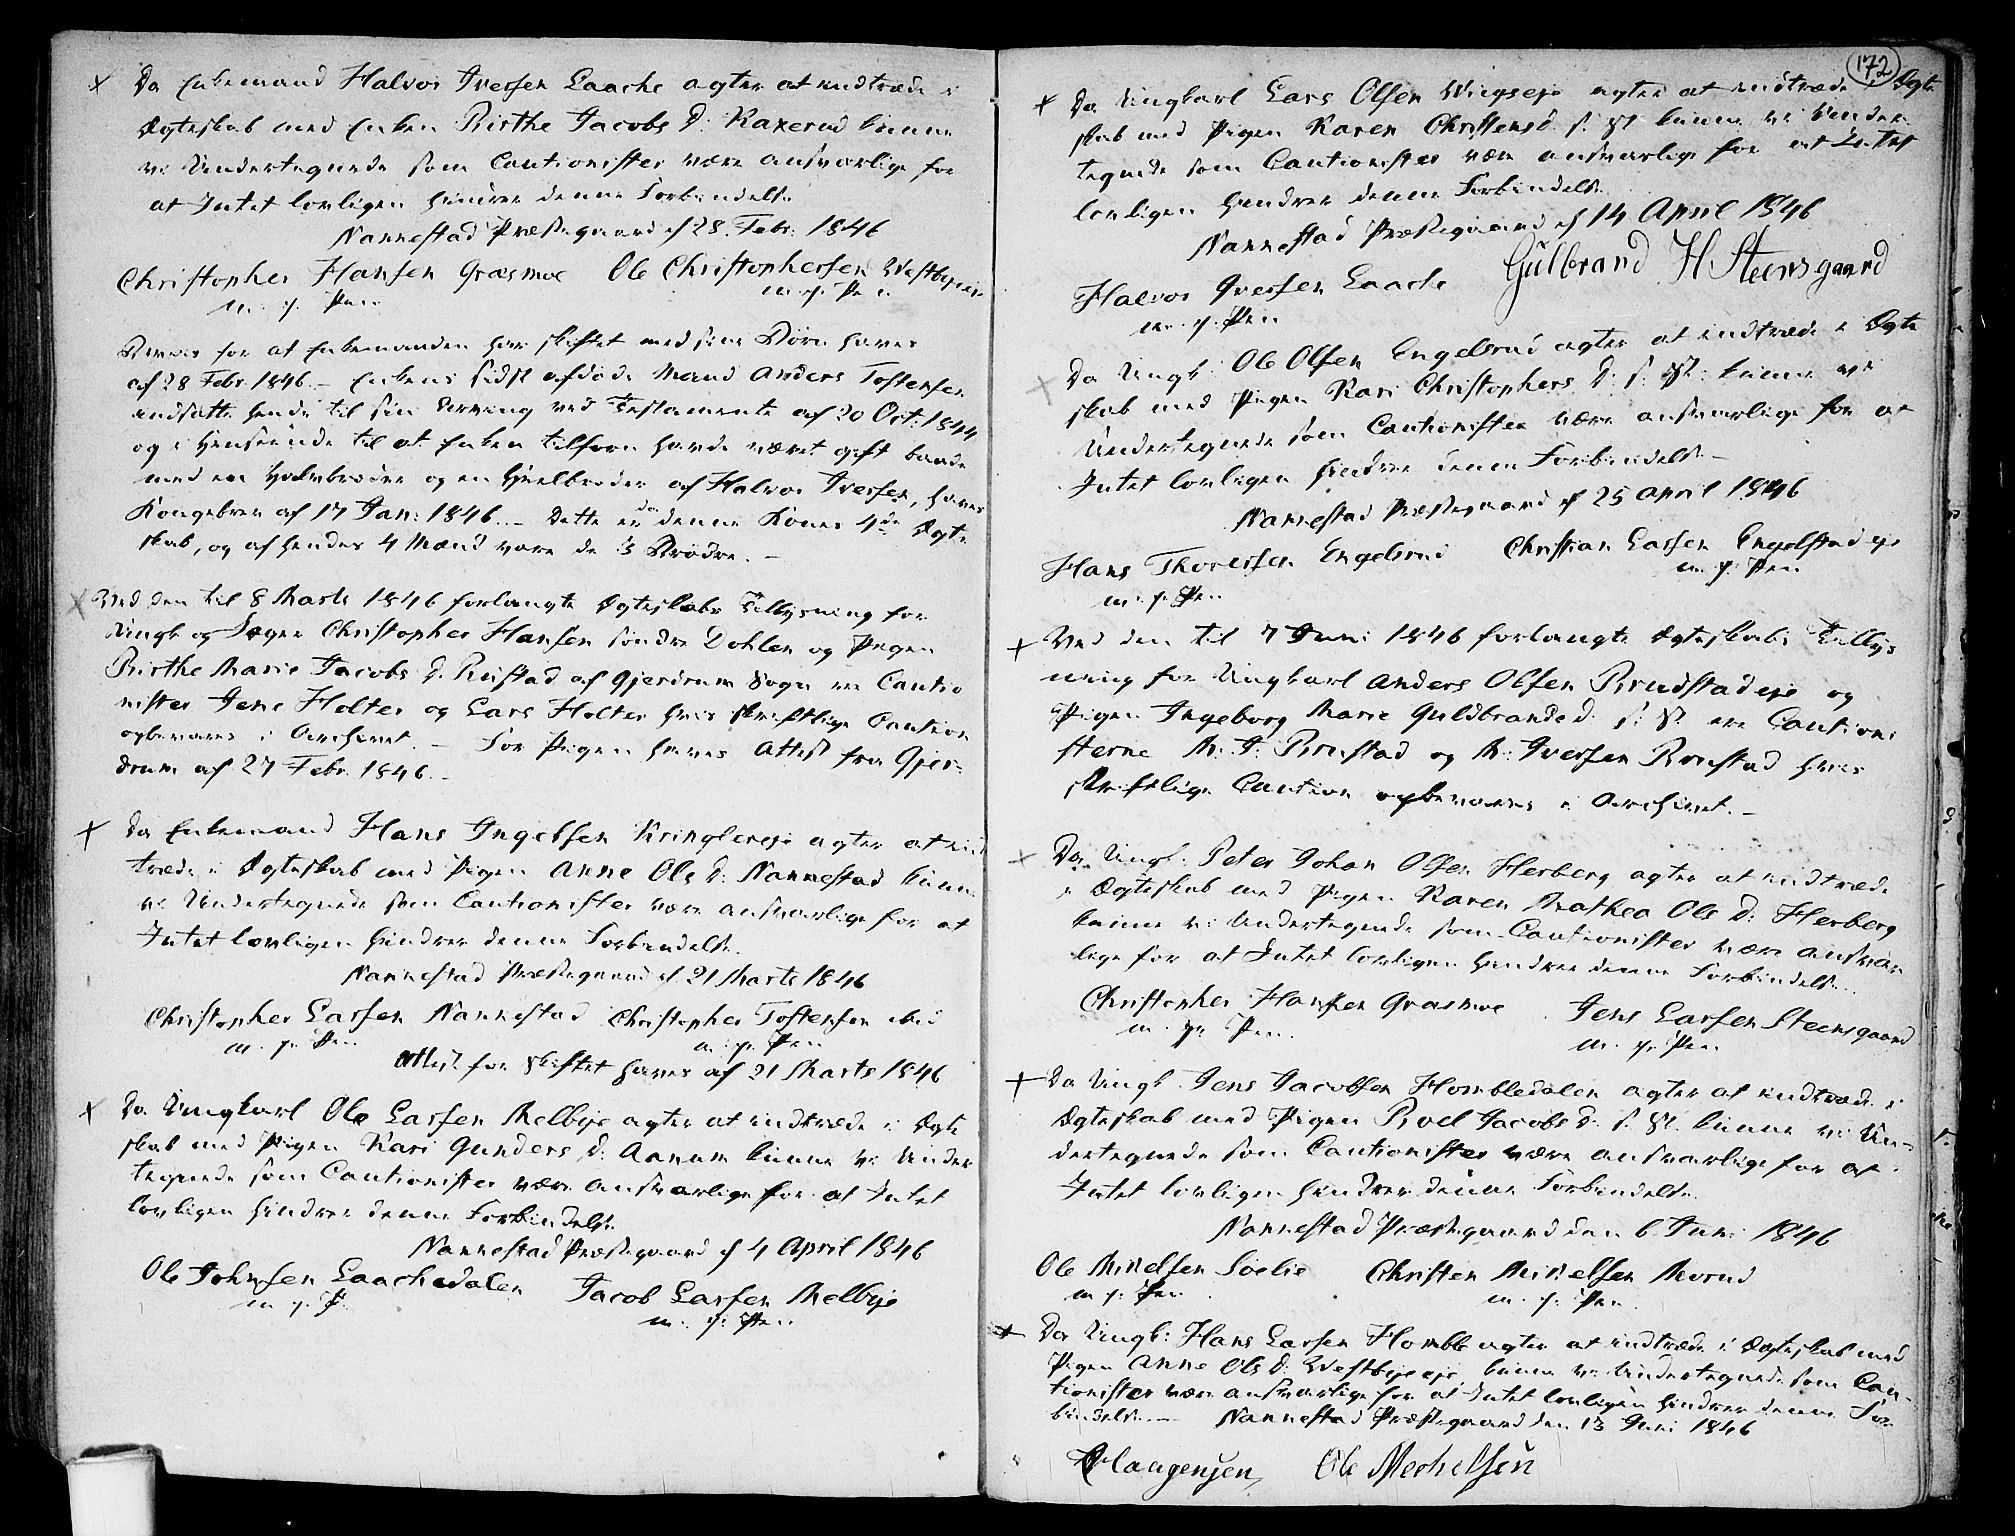 Da Enkemand Halvor Iversen Laache agter at indtræde i
Ægteskab med Enken Birthe Jacobs D. Raxerud kunne
vi Undertegnede som Cautionister være ansvarlige for
at Intet lovligen hindrer denne Forbindelse.
Nannestad Præstegaard d 28 Febr: 1846
Christopher Hansen Græsmoe Ole Christophersen Westbyeie
m. p. Pen m. p. Pen
Beviis for at Enkemanden har skiftet med sine Børn haves
af 28 Febr. 1846. – Enkens sidst afdøde Mand Anders Tostensen
indsatte hende til sin Arving ved Testamente af 20 Oct: 1844
og i Henseende til at Enken tilforn havde været gift baade
med en Halvbroder og en Heelbroder af Halvor Iversen, haves
Kongebrev af 17 Jan: 1846. – Dette er da denne Kones 4de Ægte
skab, og af hendes 4 Mænd vare de 3 Brødre. –
Ved den til 8 Marts 1846 forlangte Ægteskabs Tillysning for
Ungk og Jæger Christopher Hansen søndre Dohlen og Pigen
Birthe Marie Jacobs D. Rustad af Gjerdrum Sogn ere Cautio
nister Jens Holter og Lars Holter hvis skriftlige Caution
opbevares i Archivet. – For Pigen haves Attest fra Gjer-
drum af 27 Febr. 1846. –
Da Enkemand Hans Ingebsen Kringlereie agter at ind
træde i Ægteskab med Pigen Anne Ols D. Nannestad kunne
vi Undertegnede som Cautionister være ansvarlige for at
Intet lovligen hindrer denne Forbindelse.
Nannestad Præstegaard d 21 Marts 1846
Christopher Larsen Nannestad Christopher Tostensen
m. p. Pen m. p. Pen
Attest for Skiftet haves af 21 Marts 1846
Da Ungkarl Ole Larsen Melbye agter at indtræde i Ægte
skab med Pigen Kari Gunders D. Aanum kunne vi Under
tegnede som Cautionister være ansvarlige for at Intet
lovligen hindrer denne Forbindelse
Nannestad Præstegaard d 4 April 1846
Ole Johnsen Laachedalen Jacob Larsen Melbye
m. p. P. m. p. Pen
172
Da Ungkarl Lars Olsen Wiegseie agter at indtræde i Ægte
skab med Pigen Karen Christensd. s. St. kunne vi Under
tegnede som Cautionister være ansvarlige for at Intet
lovligen hindrer denne Forbindelse
Nannestad Præstegaard d 14 April 1846
Halvor Iversen Laache Gulbrand H Steensgaard
m. p. Pen
Da Ungk: Ole Olsen Engelsrud agter at indtræde i Ægte
skab med Pigen Kari Christophers D. s. St. kunne vi
Undertegnede som Cautionister være ansvarlige for at
Intet lovligen hindrer denne Forbindelse –
Nannestad Præstegaard d 25 April 1846
Hans Thoresen Engelsrud Christian Larsen Engelstadeje
m. p. Pen m. p. Pen
Ved den til 7 Juni 1846 forlangte Ægteskabs Tillys
ning for Ungkarl Anders Olsen Brudstadeje og
Pigen Ingeborg Marie Guldbrands d. s. St. ere Cautioni
sterne M. J. Brustad og M. Iversen Brustad hvis
skriftlige Caution opbevares i Archivet. –
Da Ungk: Peter Johan Olsen Herberg agter at indtræde
i Ægteskab med Pigen Karen Mathea Ols D. Herberg
kunne vi Undertegnede som Cautionister være ansvar
lige for at Intet lovligen hindrer denne Forbindelse.
Christopher Hansen Grasmoe Jens Larsen Steensgaard
m. p. Pen. m. p. Pen
Da Ungk Jens Jacobsen Hombledalen agter at indtræde i
Ægteskab med Pigen Boel Jacobs D. s. St. kunne vi Un-
dertegnede som Cautionister være ansvarlige for at
Intet lovligen hindrer denne Forbindelse.
Nannestad Præstegaard den 6 Juni 1846
Ole Mikelsen Soelie Christen Mikelsen Morud
m. p. Pen m. p. Pen.
Da Ungk: Hans Larsen Homble agter at indtræde i Ægteskab med
Pigen Anne Ols D. Westbyeeje kunne vi Undertegnede som Cau-
tionister være ansvarlige for at Intet lovligen hindrer denne For
bindelse. – Nannestad Præstegaard den 13 Juni 1846
Haagensen Ole Mechelsen